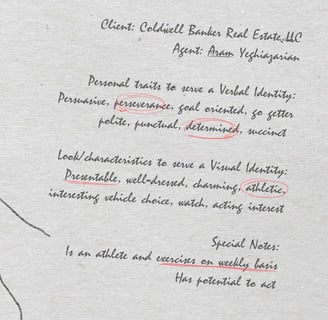 Client: Coldwell Banker Real Estate, LLC
Agent: Aram Yeghiazarian
Personal traits to serve a Verbal Identity:
Persuasive, perseverance, goal oriented, go getter
polite, punctual, determined, succinct
Look/characteristics to serve a Visual Identity:
Presentable, well-dressed, charming, athletic,
interesting vehicle choice, watch, acting interest
Special Notes:
Is an athlete and exercises on weekly basis
Has potential to act